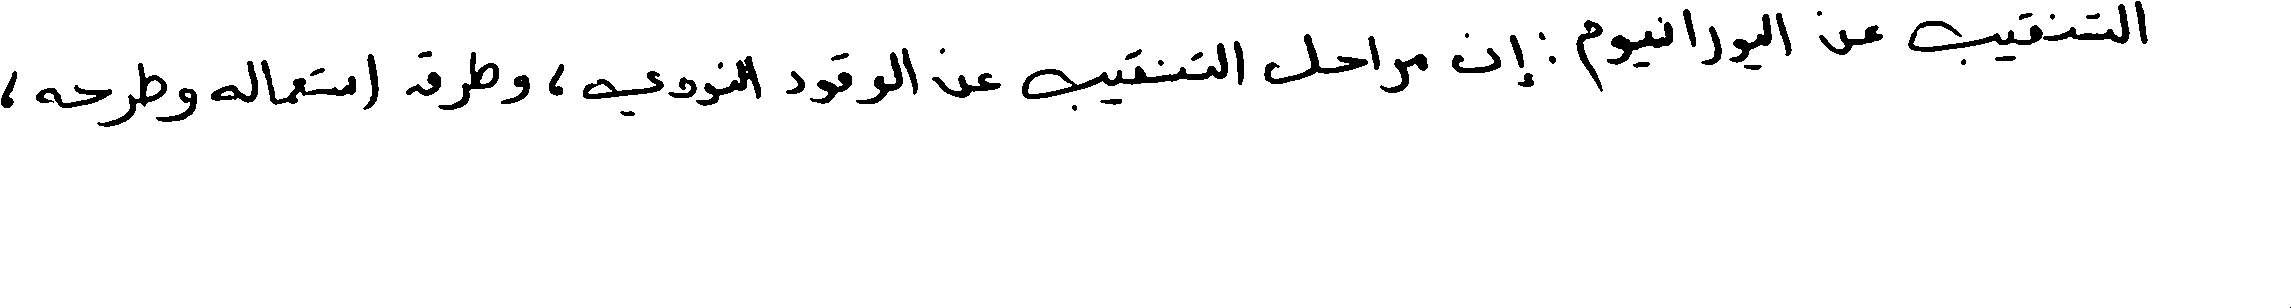 التنقيب عن اليورانيوم : إن مراحل التنقيب عن الوقود النووي ، وطرق استعماله وطرحه ،